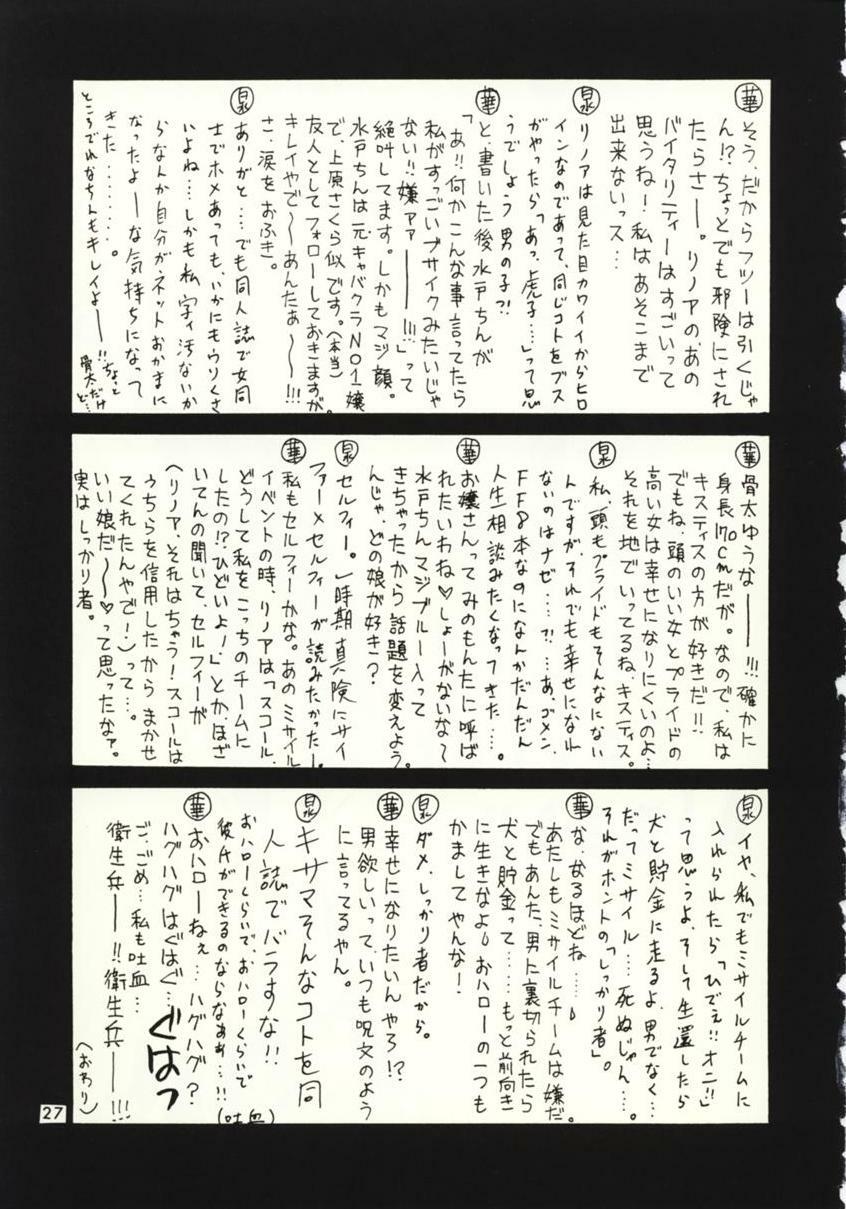 華 そう、だからフツーは引くじゃ
ん!?ちょっとでも邪険にされ
たらさー。リノアのあの
バイタリティーはすごいって
思うね!私はあそこまで
出来ないっス…
泉 リノアは見た目カワイイからヒロ
インなのであって、同じコトをブス
がやったら「あっ、虎子…」って思
うでしょう男の子?!
華 と、書いた後水戸ちんが
「あ!!何かこんな事言ってたら
私がすっごいブサイクみたいじゃ
ない!!嫌ァァーーー!!!」って
絶叫してます。しかもマジ顔。
水戸ちんは元キャバクラNO1嬢
で、上原さくら似です。(本当)
友人としてフォローしておきますが。
キレイやで〜〜あんたぁ〜〜!!!
さ、涙をおふき。
泉 ありがと…でも同人誌で女同
士でホメあっても、いかにもウリくさ
いよね…しかも私、字ィ汚ないか
らなんか自分がネットおかまに
なったよーな気持ちになって
きた………。
ところでれなちんもキレイよーー!!ちょっと
骨太だけ
ど…
華 骨太ゆうなーー!!!確かに
身長170cmだが。なので、私は
キスティスの方が好きだ!!
でもね、頭のいい女とプライドの
高い女は幸せになりにくいのよ…
それを地でいってるね、キスティス。
泉 私、頭もプライドもそんなにない
んですが、それでも幸せになれ
ないのはナゼ…?!…あ、ゴメン、
FF8本なのになんかだんだん
人生相談みたくなってきた…。
華 お嬢さんってみのもんたに呼ば
れたいわね♡しょーがないな〜
水戸ちんマジブルー入って
きちゃったから話題を変えよう。
んじゃ、どの娘が好き?
泉 セルフィー。一時期真険にサイ
ファー×セルフィーが読みたかったー。
華 私もセルフィーかな。あのミサイル
イベントの時、リノアは「スコール、
どうして私をこっちのチームに
したの!?ひどいよ!」とか、ほざ
いてんの聞いて、セルフィーが
(リノア、それはちゃう!スコールは
うちらを信用したからまかせ
てくれたんやで!)って…。
いい娘だ〜〜♡って思ったなァ。
実はしっかり者。
泉 イヤ、私でもミサイルチームに
入れられたら「ひでぇ!!オニ!!」
って思うよ、そして生還したら
犬と貯金に走るよ、男でなく…
だってミサイル…死ぬじゃん…。
それがホントの「しっかり者」。
華 な、なるほどね……
あたしもミサイルチームは嫌だ。
でもあんた、男に裏切られたら
犬と貯金って……もっと前向き
に生きなよ おハローの一つも
かましてやんな!
泉 ダメ、しっかり者だから。
華 幸せになりたいんやろ!?
男欲しいって、いつも呪文のよう
に言ってるやん。
泉 キサマそんなコトを同
人誌でバラすな!!
おハローくらいで、おハローくらいで
彼氏ができるのならなぁぁ…!!
(吐血)
華 おハローねぇ…ハグハグ?
ハグハグはぐはぐ… ぐはっ
ご、ごめ…私も吐血…
衛生兵ーー!!衛生兵ーー!!!
(おわり)
27